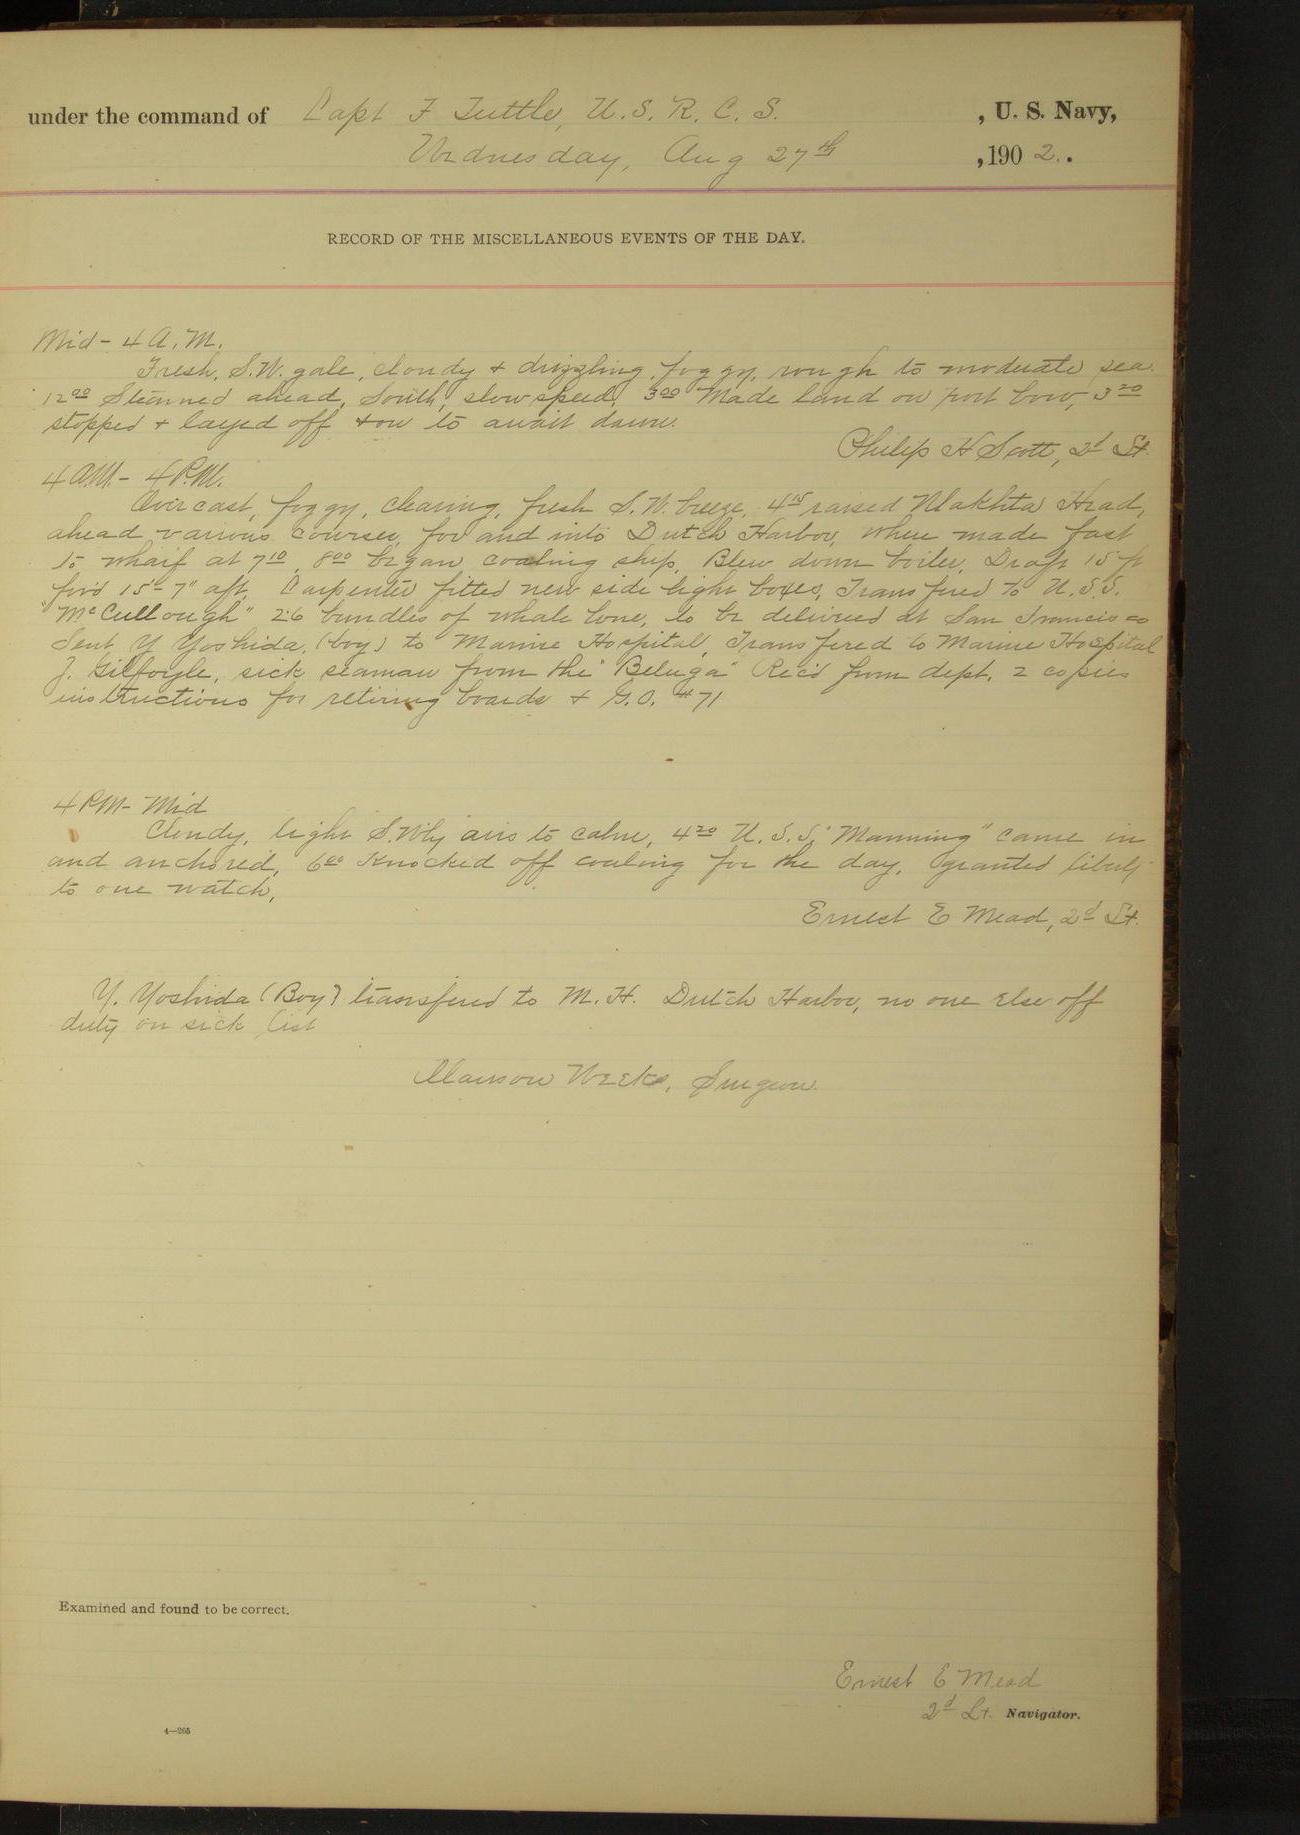 under the command of Capt F Tuttle, U.S.R.C.S. , U. S. Navy,
Wednesday, Aug 27th ,190 2. .
RECORD OF THE MISCELLANEOUS EVENTS OF THE DAY.
Mid - 4 A.M.
Fresh, S.W. gale, cloudy + drizzling, foggy, rough to moderate sea.
12 00 Steamed ahead, South, slow speed, 3 00 Made land on port bow, 3 20
stopped + layed off + on to await dawn.
Philip H Scott, 2d Lt.
4 A.M. - 4 P.M.
Overcast, foggy, clearing, fresh S.W. breeze, 4 15 raised Ulakhta Head,
ahead various courses, for and into Dutch Harbor, where made fast
to wharf at 7 10, 8 00 began coaling ship, Blew down boiler, Draft 15 ft
for'd 15-7" aft, Carpenter fitted new side light boxes, Transfered to U.S.S.
"McCullough" 26 bundles of whale bone, to be delivered at San Francisco
Sent Y Yoshida, (boy) to Marine Hospital, Transfered to Marine Hospital
J. Gilfoyle, sick seaman from the "Beluga" Rec'd from dept. 2 copies
instructions for retiring boards + G.O. #71
4 PM - Mid
Cloudy, light S.W'ly airs to calm, 4 20 U.S.S. "Manning" came in
and anchored, 6 00 Knocked off coaling for the day, granted liberty
to one watch,
Ernest E Mead, 2d Lt.
Y. Yoshida (Boy) transfered to M.H. Dutch Harbor, no one else off
duty on sick list
Weeks, Surgeon.
Examined and found to be correct.
Ernest E Mead
2d Lt. Navigator.
4—265